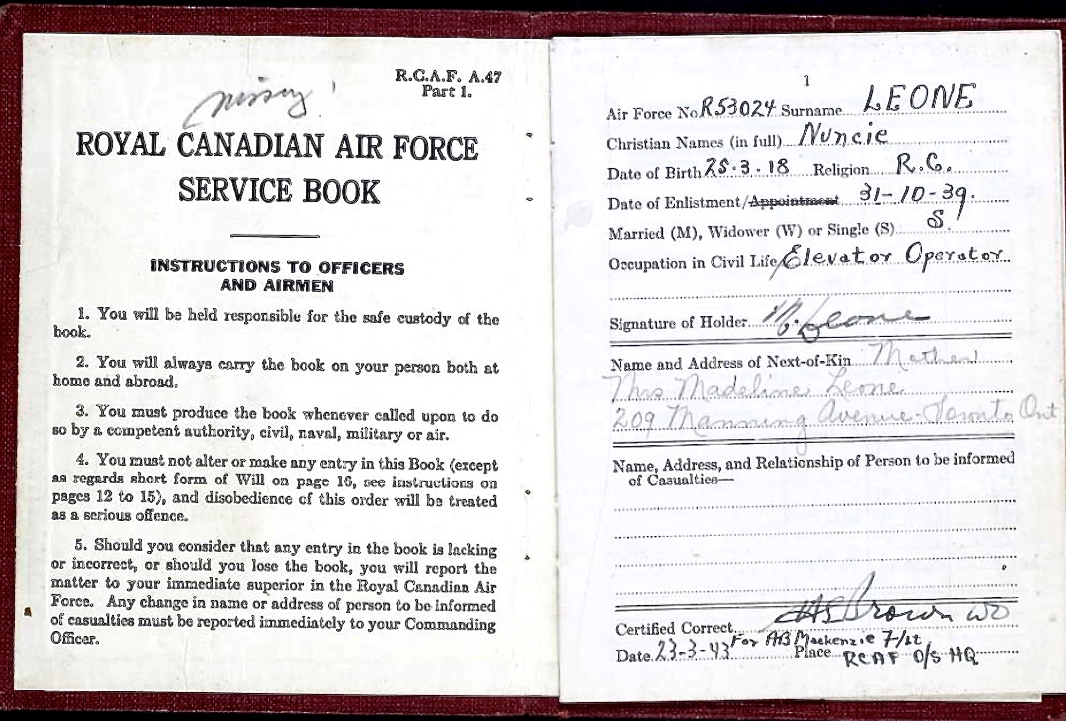 R.C.A.F. A.47
Part 1.
missing!
ROYAL CANADIAN AIR FORCE
SERVICE BOOK
INSTRUCTIONS TO OFFICERS
AND AIRMEN
1. You will be held responsible for the safe custody of the
book.
2. You will always carry the book on your person both at
home and abroad.
3. You must produce the book whenever called upon to do
so by a competent authority, civil, naval, military or air.
4. You must not alter or make any entry in this Book (except
as regards short form of Will on page 16, see instructions on
pages 12 to 15), and disobedience of this order will be treated
as a serious offence.
5. Should you consider that any entry in the book is lacking
or incorrect, or should you lose the book, you will report the
matter to your immediate superior in the Royal Canadian Air
Force. Any change in name or address of person to be informed
of casualties must be reported immediately to your Commanding
Officer.
1
Air Force No. R53024 Surname LEONE
Christian Names (in full) Nuncie
Date of Birth 25.3.18 Religion R.C.
Date of Enlistment/Appointment 31-10-39.
Married (M), Widower (W) or Single (S) S
Occupation in Civil Life Elevator Operator
Signature of Holder N. Leone
Name and Address of Next-of-Kin Mother
Mrs Madeline Leone
209 Manning Avenue - Toronto Ont
Name, Address, and Relationship of Person to be informed
of Casualties—
Certified Correct Brown WO
For AB Mackenzie F/Lt
Date 23-3-43 Place RCAF O/S HQ